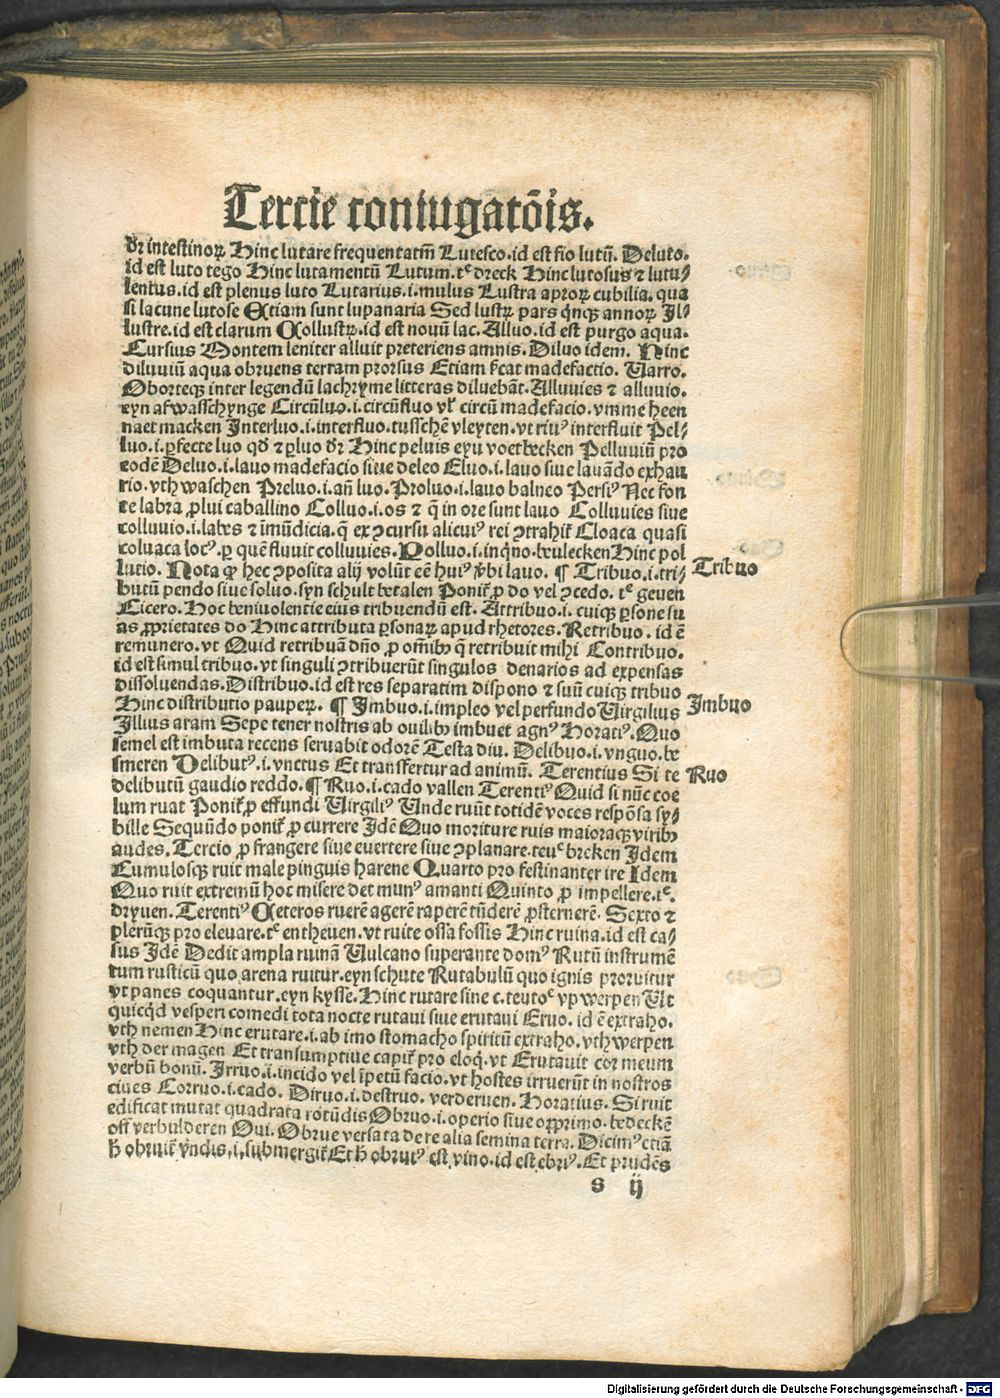 Tercie coniugatōis.
dr̄ intestinoꝝ Hinc lutare frequentatiuū Lutesco.id est fio lutū. Deluto.
id est luto tego Hinc lutamentū Lutum.tᶜ dreck Hinc lutosus ⁊ lutu⸗
lentus.id est plenus luto Lutarius.i.mulus Lustra aproꝝ cubilia. qua
si lacune lutose Etiam sunt lupanaria Sed lustꝝ pars qͥnqꝫ annoꝝ Il⸗
lustre.id est clarum Collustꝝ.id est nouū lac. Alluo.id est purgo aqua.
Cursius Montem leniter alluit preteriens amnis. Diluo idem. Hinc
diluuiū aqua obruens terram prorsus Etiam fͨcat madefactio. Uarro.
Oborteqꝫ inter legendū lachryme litteras diluebāt. Alluuies ⁊ alluuio.
eyn afwasschynge Circūluo.i.circūfluo vl̛ circū madefacio.vmme heen
naet macken Interluo.i.interfluo.tusschē vleyten.vt riuꝰ interfluit Pel⸗
luo.i.ꝑfecte luo qd̄ ⁊ ꝑluo dr̄ Hinc peluis eyn voetbecken Pelluuiū pro
eodē Deluo.i.lauo madefacio siue deleo Eluo.i.lauo siue lauādo exhau
rio.vth waschen Preluo.i.añ luo.Proluo.i.lauo balneo Persiꝰ Nec fon
te labra ꝓlui caballino Colluo.i.os ⁊ q̄ in ore sunt lauo Colluuies siue
colluuio.i.labes ⁊ īmūdicia.q̄ ex ↄcursu alicuiꝰ rei ↄtrahit̛ Cloaca quasi
coluaca locꝰ. ꝑ quē fluuit colluuies. Polluo.i.inqͥno.beulecken Hinc pol
lutio. Nota ꝙ hec ↄposita alij volūt eē huiꝰ v̛bi lauo. ¶ Tribuo.i.tri⸗
butū pendo siue soluo.syn schult betalen Ponit̛ ꝓ do vel ↄcedo. tᶜ geuen
Cicero. Hoc beniuolentie eius tribuendū est. Attribuo.i. cuiqꝫ ꝑsone su
as ꝓprietates do Hinc attributa ꝑsonaꝝ apud rhetores. Retribuo. id ē
remunero. vt Quid retribuā dn̄o ꝓ om̄ibꝫ q̄ retribuit mihi Contribuo.
id est simul tribuo. vt singuli ↄtribuerūt singulos denarios ad expensas
dissoluendas. Distribuo.id est res separatim dispono ⁊ suū cuiqꝫ tribuo
Hinc distributio pauperꝝ. ¶ Imbuo.i.impleo vel perfundo Uirgilius
Illius aram Sepe tener nostris ab ouilibꝫ imbuet agnꝰ Horatiꝰ. Quo
semel est imbuta recens seruabit odorē Testa diu. Delibuo.i.vnguo.be
smeren Delibutꝰ.i.vnctus Et transfertur ad animū. Terentius Si te
delibutū gaudio reddo. ¶ Ruo.i.cado vallen Terentiꝰ Quid si nūc coe
lum ruat Ponit̛ ꝓ effundi Uirgiliꝰ Unde ruūt totidē voces respōsa sy⸗
bille Sequūdo ponit̛ ꝓ currere Idē Quo moriture ruis maioraqꝫ viribꝫ
audes. Tercio ꝓ frangere siue euertere siue ↄplanare.teuᶜ breken Idem
Cumulosqꝫ ruit male pinguis harene Quarto pro festinanter ire Idem
Quo ruit extremū hoc misere det munꝰ amanti Quinto ꝓ impellere.tᶜ.
dryuen. Terentiꝰ Ceteros ruerē agerē raperē tūderē ꝓsternerē. Sexto ⁊
plerūqꝫ pro eleuare.tᶜ entheuen. vt ruite ossa fossis Hinc ruina.id est ca⸗
sus Idē Dedit ampla ruinā Uulcano superante domꝰ Rutū instrumē
tum rusticū quo arena ruitur.eyn schute Rutabulū quo ignis proruitur
vt panes coquantur.eyn kysse. Hinc rutare sine c.teutoᶜ vp werpen Ut
quicqͥd vesperi comedi tota nocte rutaui siue erutaui Eruo. id ē extraho.
vth nemen Hinc erutare.i.ab imo stomacho spiritū extraho.vth werpen
vth der magen Et transumptiue capit̛ pro eloqͥ. vt Erutauit cor meum
verbū bonū. Irruo.i.incido vel īpetū facio. vt hostes irruerūt in nostros
ciues Corruo.i.cado. Diruo.i.destruo. verderuen. Horatius. Diruit
edificat mutat quadrata rotūdis Obruo.i.operio siue opprimo.bedeckē
off verbulderen Oui. Obrue versata dere alia semina terra. Dicimꝰ etiā
ħ obruit̛ vndis.i.submergit̛ Et ħ obruiꝰ est vino.id est ebriꝰ. Et prudēs
s ij
Tribuo
Imbuo
Ruo
Digitalisierung gefördert durch die Deutsche Forschungsgemeinschaft - DFG